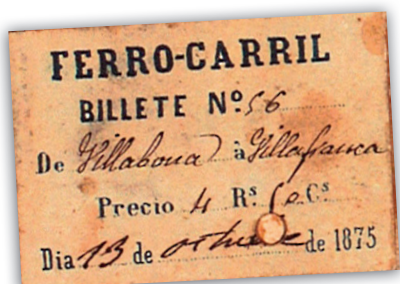 FERRO-CARRIL
BILLETE Nº 56
De Villabona à Villafranca
Precio 4 Rs 50 Cs
Dia 13 de octubre de 1875